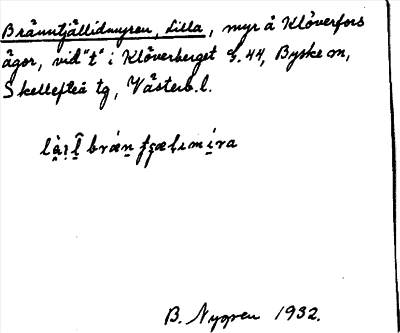 Bränntjällidmyren, Lilla, myr å Klöverfors
ägor, vid "t" i Klöverberget g. 44, Byske sn,
Skellefteå tg, Västerb. l.
B. Nygren 1932.